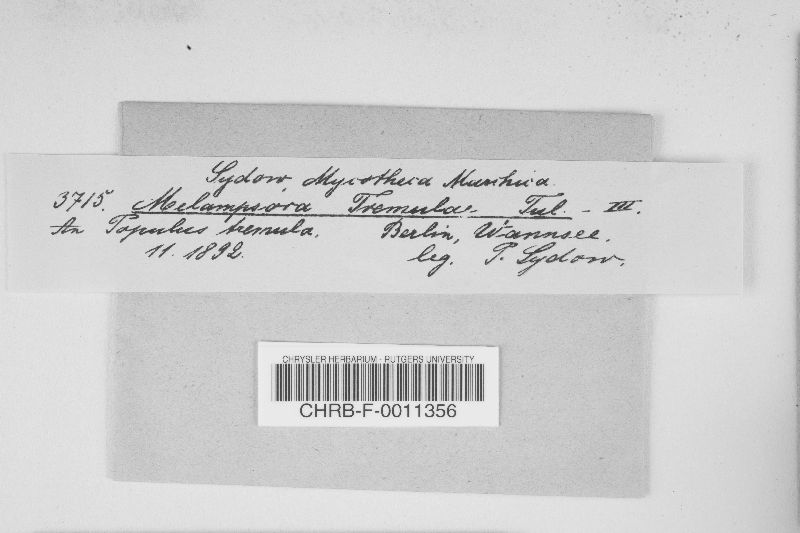 Sydow, Mycotheca Marchica.
3715. Melampsora Tremulae Tul. – III.
An Populus tremula. Berlin, Wannsee.
11. 1892. leg. P. Sydow.
CHRYSLER HERBARIUM - RUTGERS UNIVERSITY
CHRB-F-0011356